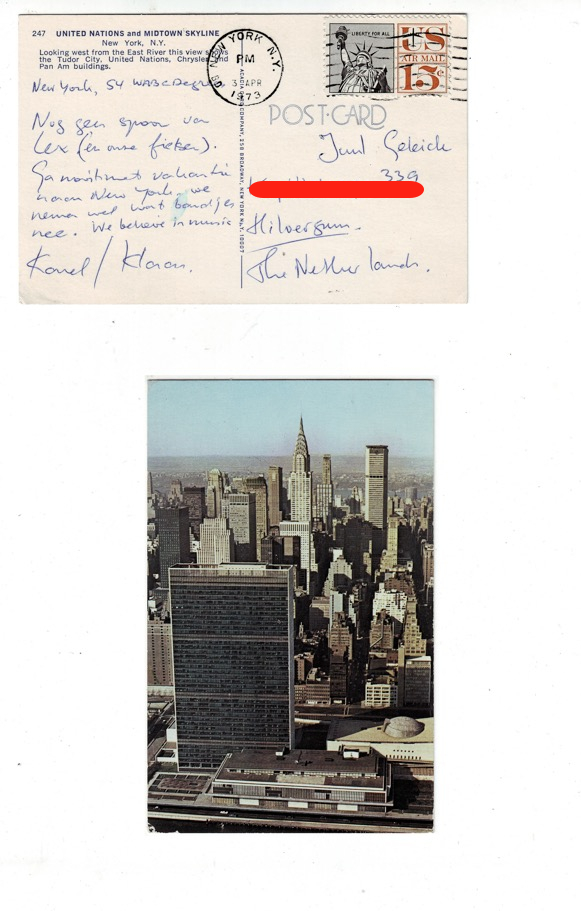 247 UNITED NATIONS and MIDTOWN SKYLINE
New York, N.Y.
Looking west from the East River this view shows
the Tudor City, United Nations, Chrysler and
Pan Am buildings.
New York, 54 WABC Degrees
Nog geen spoor van
Lex (én onze fietser).
Ga nooit met vakantie
naar New York. we
nemen wel wat bandjes
mee. We believe in music
Karel / Klaas.
ACADIA COMPANY, 258 BROADWAY, NEW YORK N.Y. 10007
NEW YORK, N.Y.
PM
3 APR
1973
LIBERTY FOR ALL
US
AIR MAIL
15¢
POST CARD
Juul Geleick
339
Hilversum.
The Netherlands.